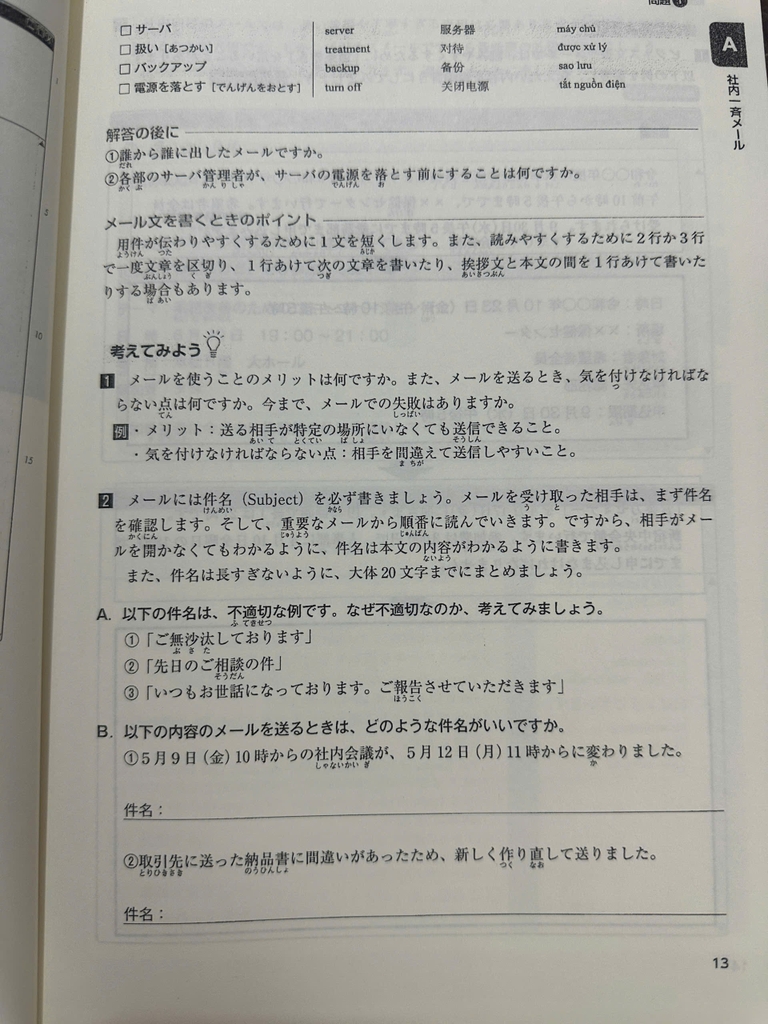 問題
A
社内一斉メール
□ サーバ server 服务器 máy chủ
□ 扱い［あつかい］ treatment 对待 được xử lý
□ バックアップ backup 备份 sao lưu
□ 電源を落とす［でんげんをおとす］ turn off 关闭电源 tắt nguồn điện
解答の後に
①誰から誰に出したメールですか。
だれ
②各部のサーバ管理者が、サーバの電源を落とす前にすることは何ですか。
かく ぶ かん り しゃ でんげん お
メール文を書くときのポイント
用件が伝わりやすくするために1文を短くします。また、読みやすくするために2行か3行
ようけん つた みじか
で一度文章を区切り、1行あけて次の文章を書いたり、挨拶文と本文の間を1行あけて書いた
ぶんしょう く ぎ つぎ あいさつぶん
りする場合もあります。
ば あい
考えてみよう
1 メールを使うことのメリットは何ですか。また、メールを送るとき、気を付けなければな
つ
らない点は何ですか。今まで、メールでの失敗はありますか。
てん しっぱい
例・メリット：送る相手が特定の場所にいなくても送信できること。
あい て とくてい ば しょ そうしん
・気を付けなければならない点：相手を間違えて送信しやすいこと。
ま ちが
2 メールには件名（Subject）を必ず書きましょう。メールを受け取った相手は、まず件名
けんめい かなら う と
を確認します。そして、重要なメールから順番に読んでいきます。ですから、相手がメー
かくにん じゅうよう じゅんばん
ルを開かなくてもわかるように、件名は本文の内容がわかるように書きます。
ないよう
また、件名は長すぎないように、大体20文字までにまとめましょう。
A. 以下の件名は、不適切な例です。なぜ不適切なのか、考えてみましょう。
ふ てきせつ
①「ご無沙汰しております」
ぶ さ た
②「先日のご相談の件」
そうだん
③「いつもお世話になっております。ご報告させていただきます」
ほうこく
B. 以下の内容のメールを送るときは、どのような件名がいいですか。
①5月9日（金）10時からの社内会議が、5月12日（月）11時からに変わりました。
しゃないかい ぎ か
件名：
②取引先に送った納品書に間違いがあったため、新しく作り直して送りました。
とりひきさき のうひんしょ つく なお
件名：
13